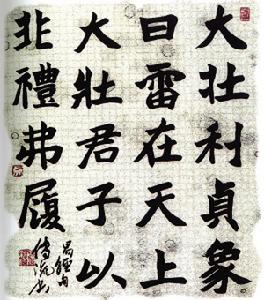 大壮利貞象
曰雷在天上
大壯君子以
非禮弗履
易經句